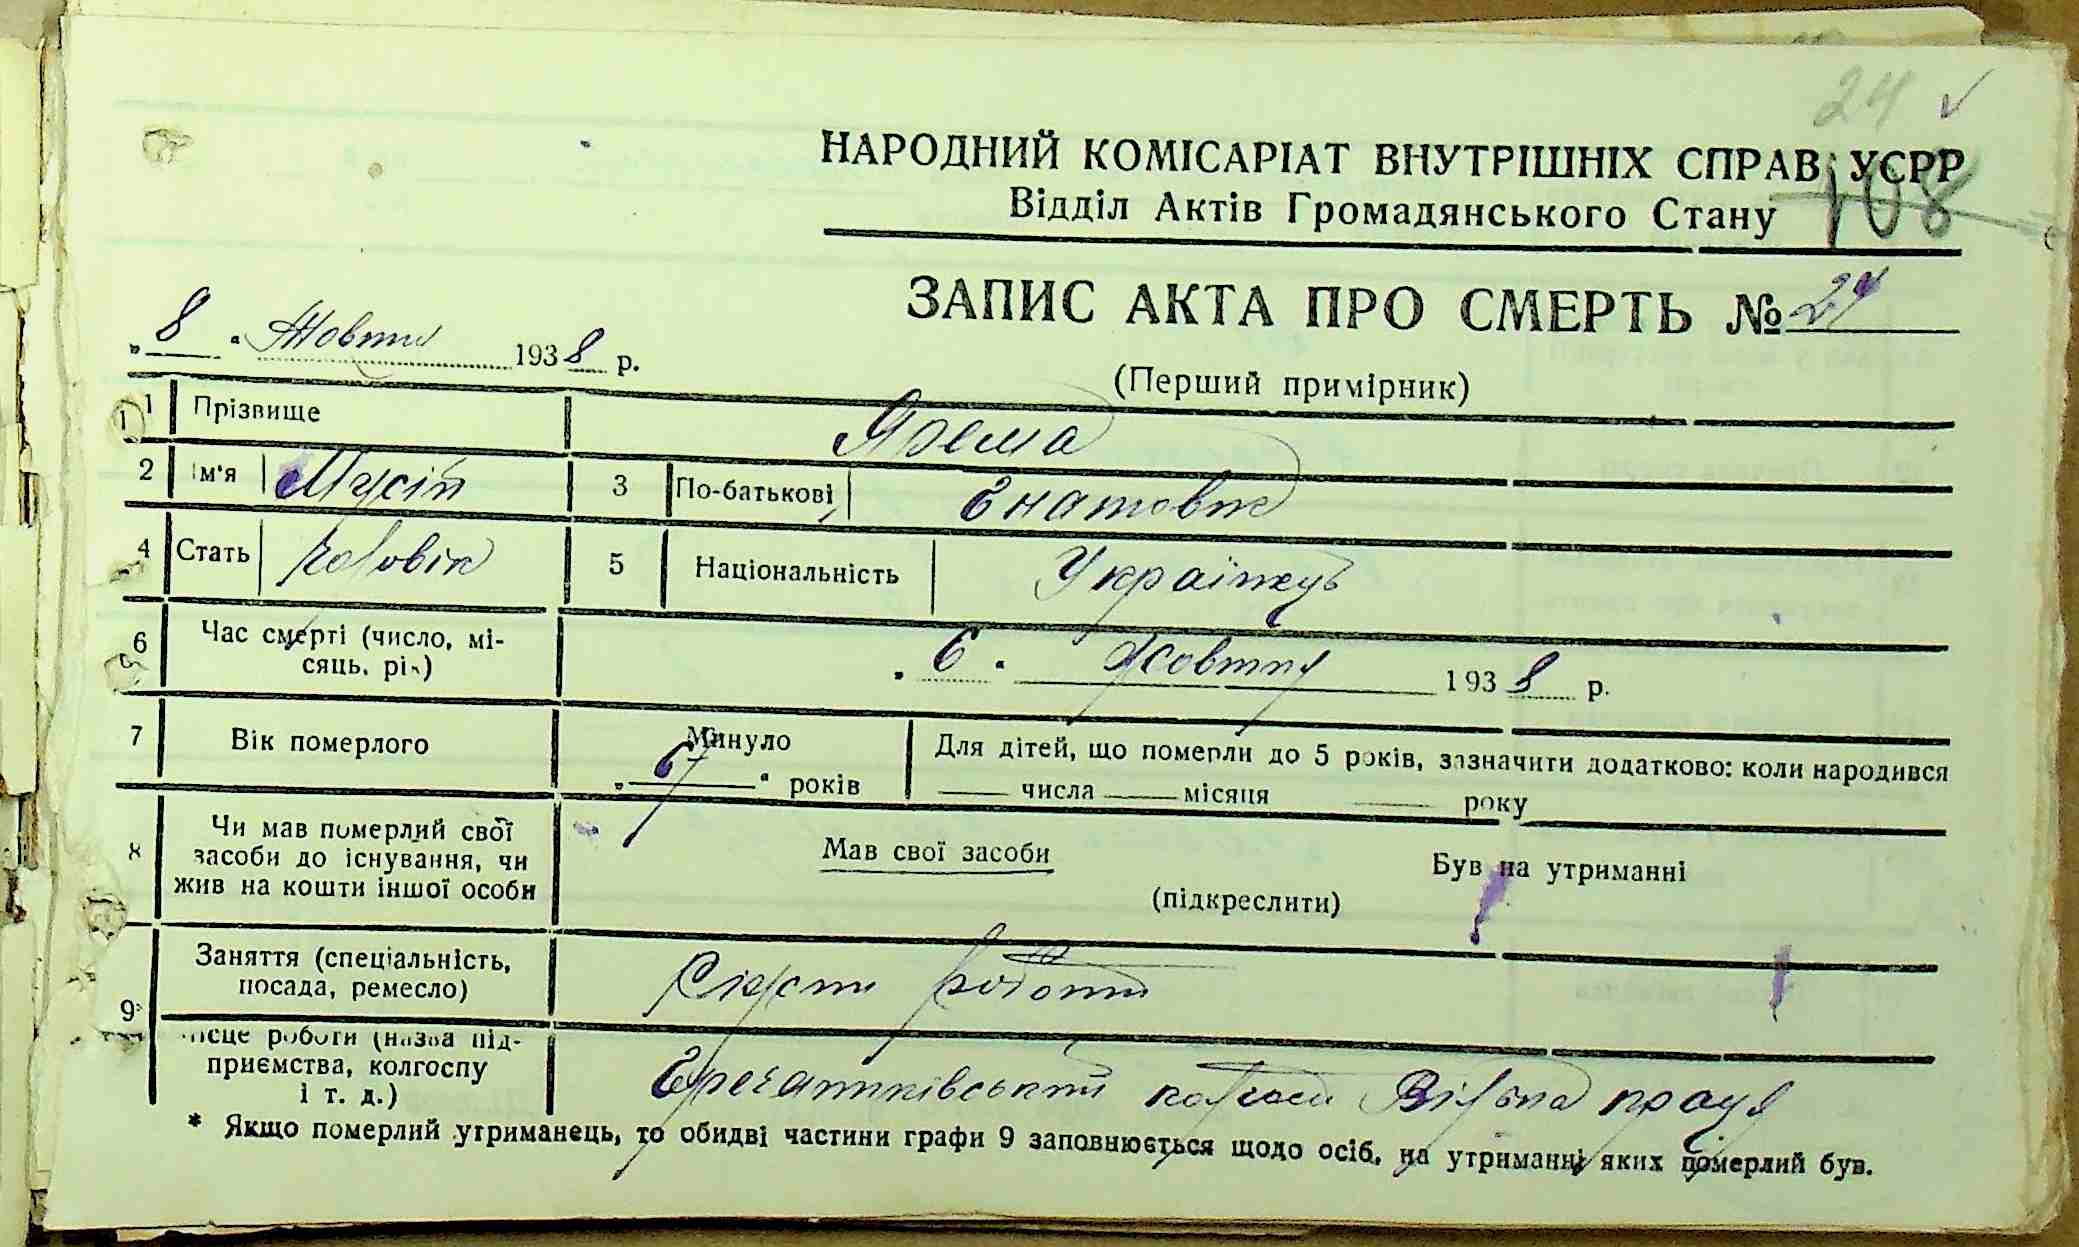 24 ✓
НАРОДНИЙ КОМІСАРІАТ ВНУТРІШНІХ СПРАВ УСРР
Відділ Актів Громадянського Стану 108
ЗАПИС АКТА ПРО СМЕРТЬ № 24
„ 8 " Жовтня 1938 р.
(Перший примірник)
1 Прізвище Ярема
2 Ім'я Мусій 3 По-батькові Гнатовіч
4 Стать чоловік 5 Національність Українець
6 Час смерті (число, мі-
сяць, рік) „ 6 " Жовтня 1938 р.
7 Вік померлого Минуло „ 67 " років Для дітей, що померли до 5 років, зазначити додатково: коли народився
числа місяця року
8 Чи мав померлий свої
засоби до існування, чи
жив на кошти іншої особи
Мав свої засоби Був на утриманні
(підкреслити)
9* Заняття (спеціальність,
посада, ремесло) роботи
Місце роботи (назва під-
приємства, колгоспу
і т. д.) колгосп Вільна праця
* Якщо померлий утриманець, то обидві частини графи 9 заповнюється щодо осіб, на утриманні яких померлий був.